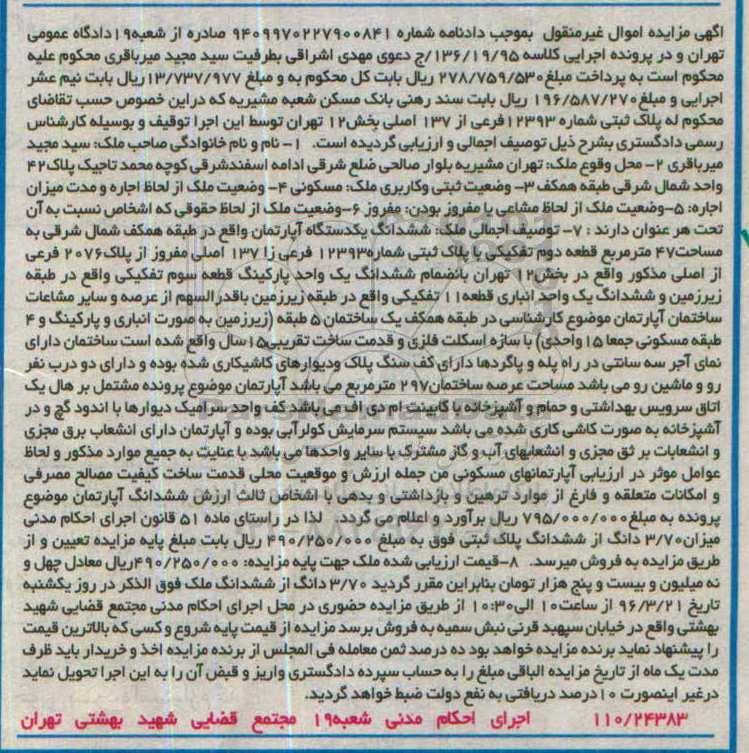 اگهی مزایده اموال غیرمنقول بموجب دادنامه شماره ۹۴۰۹۹۷۰۲۲۷۹۰۰۸۴۱ صادره از شعبه۱۹دادگاه عمومی
تهران و در پرونده اجرایی کلاسه ۱۳۶/۱۹/۹۵/ج دعوی مهدی اشراقی بطرفیت سید مجید میرباقری محکوم علیه
محکوم است به پرداخت مبلغ۲۷۸/۷۵۹/۵۳۰ ریال بابت کل محکوم به و مبلغ ۱۳/۷۳۷/۹۷۷ریال بابت نیم عشر
اجرایی و مبلغ۱۹۶/۵۸۷/۲۷۰ ریال بابت سند رهنی بانک مسکن شعبه مشیریه که دراین خصوص حسب تقاضای
محکوم له پلاک ثبتی شماره ۱۲۳۹۳فرعی از ۱۳۷ اصلی بخش۱۲ تهران توسط این اجرا توقیف و بوسیله کارشناس
رسمی دادگستری بشرح ذیل توصیف اجمالی و ارزیابی گردیده است. ۱- نام و نام خانوادگی صاحب ملک: سید مجید
میرباقری ۲- محل وقوع ملک: تهران مشیریه بلوار صالحی ضلع شرقی ادامه اسفندشرقی کوچه محمد تاجیک پلاک۴۲
واحد شمال شرقی طبقه همکف ۳- وضعیت ثبتی وکاربری ملک: مسکونی ۴- وضعیت ملک از لحاظ اجاره و مدت میزان
اجاره: ۵-وضعیت ملک از لحاظ مشاعی یا مفروز بودن: مفروز ۶-وضعیت ملک از لحاظ حقوقی که اشخاص نسبت به آن
تحت هر عنوان دارند : ۷- توصیف اجمالی ملک: ششدانگ یکدستگاه آپارتمان واقع در طبقه همکف شمال شرقی به
مساحت۴۷ مترمربع قطعه دوم تفکیکی با پلاک ثبتی شماره۱۲۳۹۳ فرعی زا ۱۳۷ اصلی مفروز از پلاک۲۰۷۶ فرعی
از اصلی مذکور واقع در بخش۱۲ تهران بانضمام ششدانگ یک واحد پارکینگ قطعه سوم تفکیکی واقع در طبقه
زیرزمین و ششدانگ یک واحد انباری قطعه۱۱ تفکیکی واقع در طبقه زیرزمین باقدرالسهم از عرصه و سایر مشاعات
ساختمان آپارتمان موضوع کارشناسی در طبقه همکف یک ساختمان ۵ طبقه (زیرزمین به صورت انباری و پارکینگ و ۴
طبقه مسکونی جمعا ۱۵ واحدی) با سازه اسکلت فلزی و قدمت ساخت تقریبی۱۵سال واقع شده است ساختمان دارای
نمای آجر سه سانتی در راه پله و پاگردها دارای کف سنگ پلاک ودیوارهای کاشیکاری شده بوده و دارای دو درب نفر
رو و ماشین رو می باشد مساحت عرصه ساختمان۲۹۷ مترمربع می باشد آپارتمان موضوع پرونده مشتمل بر هال یک
اتاق سرویس بهداشتی و حمام و آشپزخانه با کابینت ام دی اف می باشد کف واحد سرامیک دیوارها با اندود گچ و در
آشپزخانه به صورت کاشی کاری شده می باشد سیستم سرمایش کولرآبی بوده و آپارتمان دارای انشعاب برق مجزی
و انشعابات بر ثق مجزی و انشعابهای آب و گاز مشترک با سایر واحدها می باشد با عنایت به جمیع موارد مذکور و لحاظ
عوامل موثر در ارزیابی آپارتمانهای مسکونی من جمله ارزش و موقعیت محلی قدمت ساخت کیفیت مصالح مصرفی
و امکانات متعلقه و فارغ از موارد ترهین و بازداشتی و بدهی با اشخاص ثالث ارزش ششدانگ آپارتمان موضوع
پرونده به مبلغ۷۹۵/۰۰۰/۰۰۰ ریال برآورد و اعلام می گردد. لذا در راستای ماده ۵۱ قانون اجرای احکام مدنی
میزان۳/۷۰ دانگ از ششدانگ پلاک ثبتی فوق به مبلغ ۴۹۰/۲۵۰/۰۰۰ ریال بابت مبلغ پایه مزایده تعیین و از
طریق مزایده به فروش میرسد. ۸-قیمت ارزیابی شده ملک جهت پایه مزایده: ۴۹۰/۲۵۰/۰۰۰ریال معادل چهل و
نه میلیون و بیست و پنج هزار تومان بنابراین مقرر گردید ۳/۷۰ دانگ از ششدانگ ملک فوق الذکر در روز یکشنبه
تاریخ ۹۶/۳/۲۱ از ساعت۱۰ الی۱۰:۳۰ از طریق مزایده حضوری در محل اجرای احکام مدنی مجتمع قضایی شهید
بهشتی واقع در خیابان سپهبد قرنی نبش سمیه به فروش برسد مزایده از قیمت پایه شروع و کسی که بالاترین قیمت
را پیشنهاد نماید برنده مزایده خواهد بود ده درصد ثمن معامله فی المجلس از برنده مزایده اخذ و خریدار باید ظرف
مدت یک ماه از تاریخ مزایده الباقی مبلغ را به حساب سپرده دادگستری واریز و قبض آن را به این اجرا تحویل نماید
درغیر اینصورت ۱۰درصد دریافتی به نفع دولت ضبط خواهد گردید.
۱۱۰/۲۴۳۸۳ اجرای احکام مدنی شعبه۱۹ مجتمع قضایی شهید بهشتی تهران